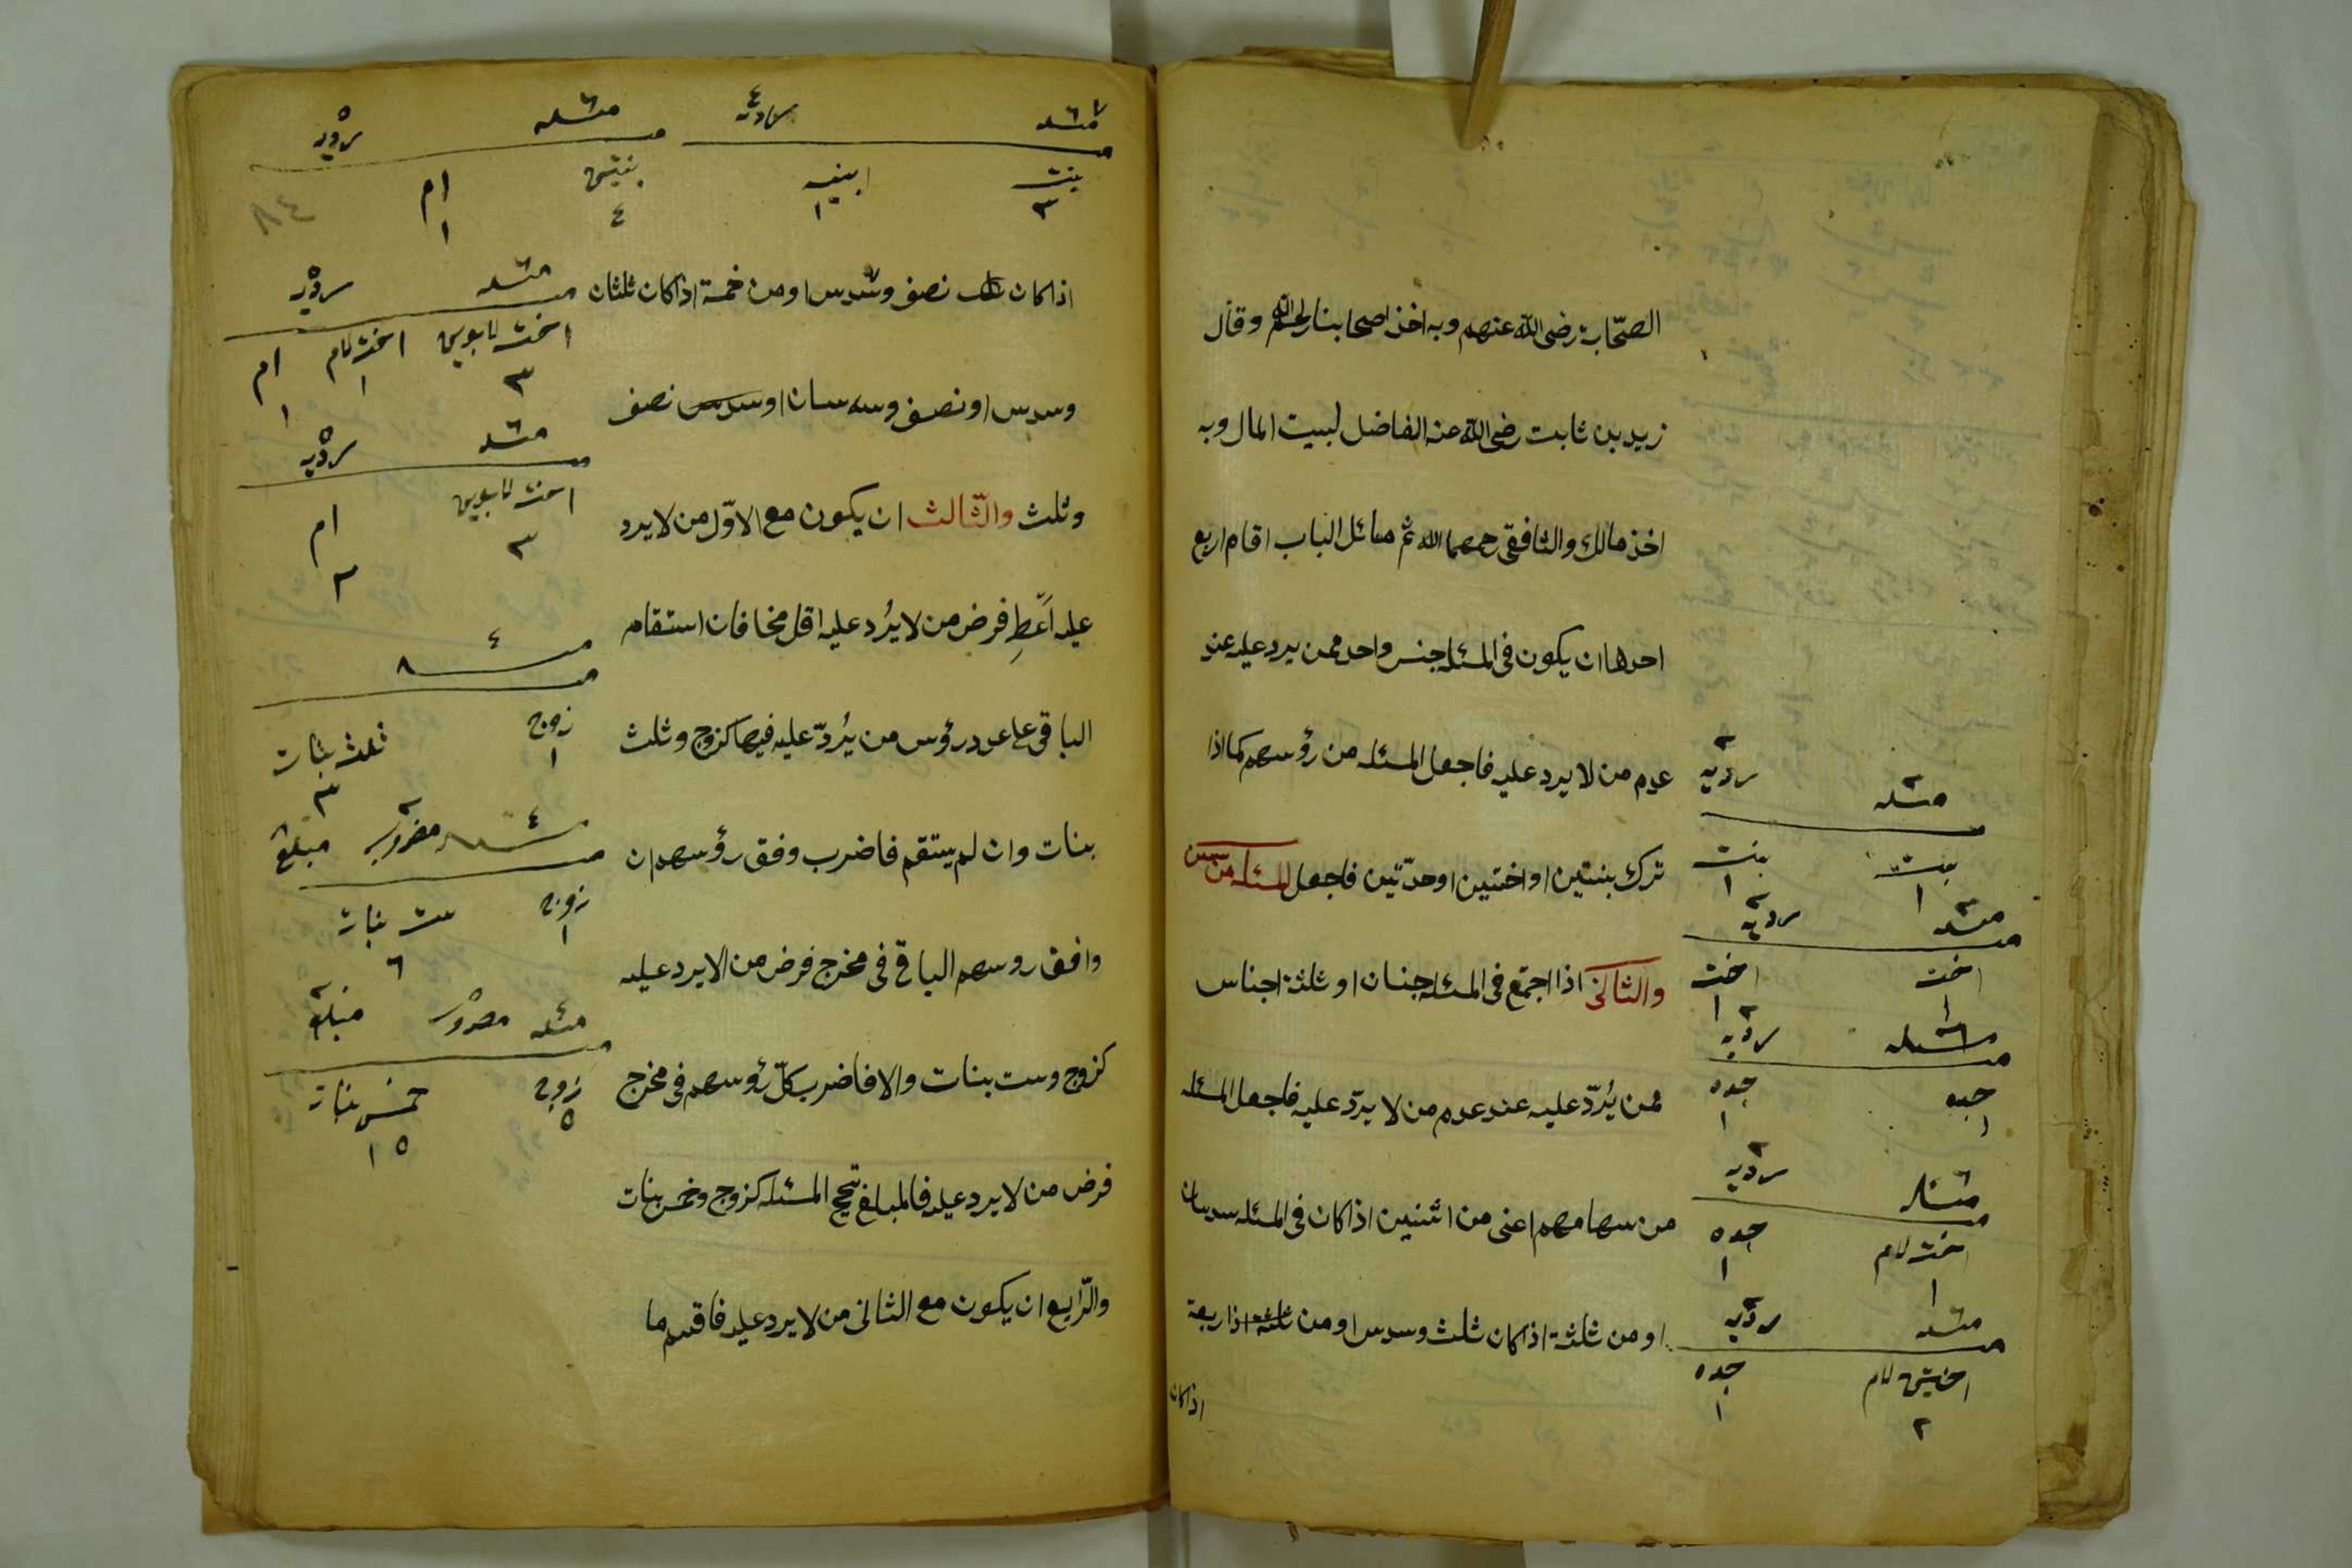 الصحّابة رضى الله عنهم وبه اخذ اصحابنا رحمهم الله وقال
زيد بن ثابت رضى الله عنه الفاضل لبيت المال وبه
اخذ مالك والشافعى رحمهما الله ثم مسائل الباب اقسام اربع
احدها ان يكون فى المسئله جنس واحد ممن يرد عليه عند
عدم من لا يرد عليه فاجعل المسئله من رؤسهم كما اذا
ترك بنتين او اختين او جدّتين فاجعل المسئله من
والثانى اذا اجتمع فى المسئله جنسان او ثلثة اجناس
ممن يُردّ عليه عند عدم من لا يردّ عليه فاجعل المسئله
من سهامهم اعنى من اثنين اذا كان فى المسئله سدسان
او من ثلثة اذا كان ثلث وسدس او من اربعة
اذا كان
مسئله ٢ رديه ٢
بنت ١ بنت ١
مسئله ٢ رديه ٢
اخت ١ اخت ١
مسئله ٦ رديه ٢
جده ١ جده ١
مسئله ٦ رديه ٢
اخت لام ١ جده ١
مسئله ٦ رديه ٣
اختين لام ٢ جده ١
مسئله ٦ رديه ٤
بنت ٣ ١
مسئله ٦ رديه ٥
بنتين ٤ ام ١
٨٤
اذا كان نصف وسدس او من خمسة اذا كان ثلثان
وسدس او نصف وسدسان او نصف
وثلث والثّالث ان يكون مع الاوّل من لا يرد
عليه اَعْطِ فرض من لا يُرد عليه اقل مخا فان استقام
الباقى على عدد رؤس من يُردّ عليه فبها كزوج وثلث
بنات وان لم يستقم فاضرب وفق رؤسهم ان
وافق روسهم الباقى فى مخرج فرض من الا يرد عليه
كزوج وست بنات والا فاضرب كلّ رؤسهم فى مخرج
فرض من لا يرد عليه فالمبلغ تصحيح المسئله كزوج وخمس بنات
والرّابع ان يكون مع الثانى من لا يرد عليه فاقسم ما
مسئله ٦ رديه ٥
اخت لابوين ٣ اخت لام ١ ام ١
مسئله ٦ رديه ٥
اخت لابوين ٣ ام ٢
٤
زوج ١ ثلث بنات ٣
٤ مضروب ٢ مبلغ
زوج ست بنات ٦
مسئله ٤ مضروب مبلغ
زوج ٥ خمس بنات ١٥